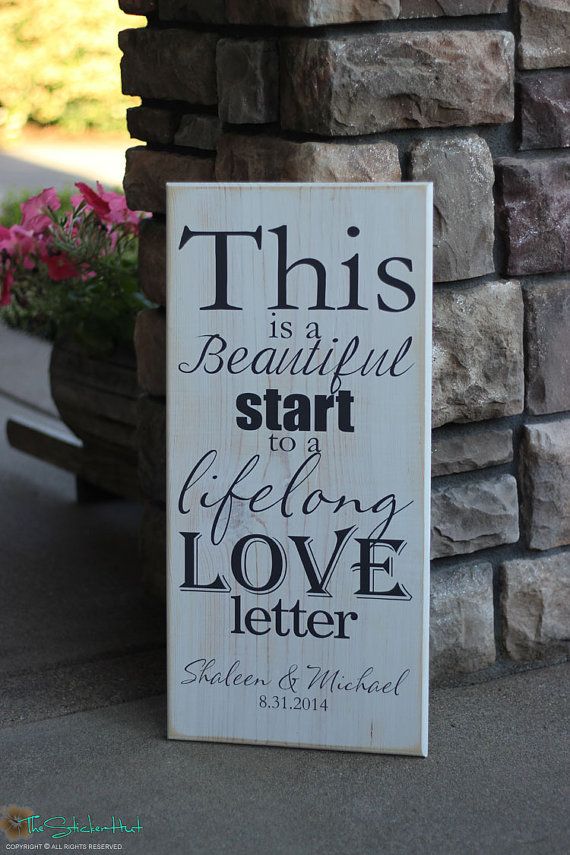 This
is a
Beautiful
start
to a
lifelong
LOVE
letter
Shaleen & Michael
8.31.2014
TheStickerHut
COPYRIGHT © ALL RIGHTS RESERVED